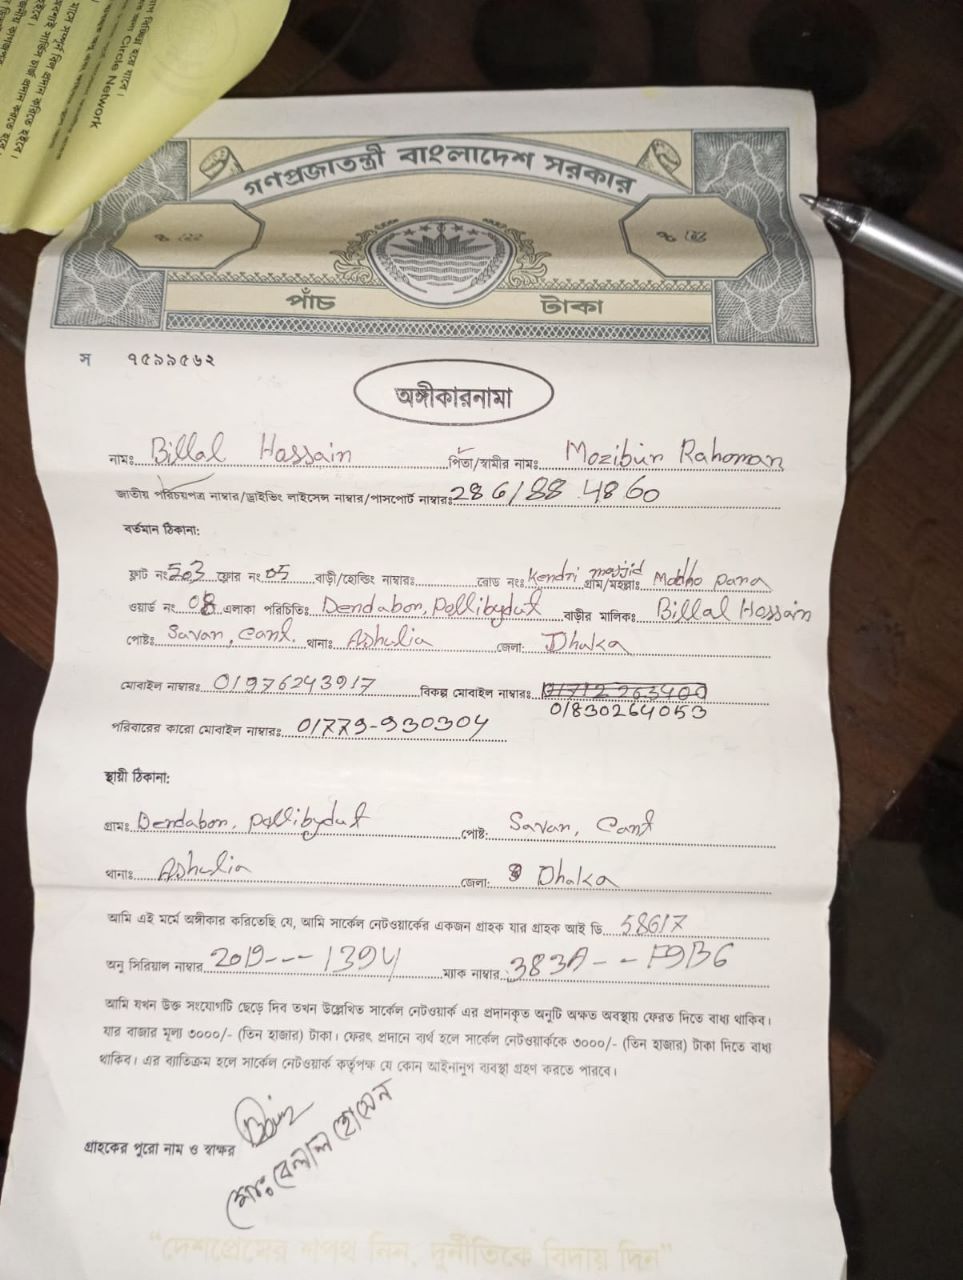 বিচ্ছিন্ন হয়ে যাবে।
Circle Network
গণপ্রজাতন্ত্রী বাংলাদেশ সরকার
পাঁচ টাকা
স ৭৫৯৯৫৬২
অঙ্গীকারনামা
নামঃ Billal Hossain পিতা/স্বামীর নামঃ Mozibur Rahoman
জাতীয় পরিচয়পত্র নাম্বার/ড্রাইভিং লাইসেন্স নাম্বার/পাসপোর্ট নাম্বারঃ 286/88 4860
বর্তমান ঠিকানা:
ফ্লাট নং 503 ফ্লোর নং 05 বাড়ী/হোল্ডিং নাম্বারঃ রোড নং Kendri masjid গ্রাম/মহল্লাঃ Moddho para
ওয়ার্ড নং 08 এলাকা পরিচিতিঃ Dendabor, Pallibydut বাড়ীর মালিকঃ Billal Hossain
পোষ্টঃ Savar, Cant. থানাঃ Ashulia জেলা: Dhaka
মোবাইল নাম্বারঃ 01976243917 বিকল্প মোবাইল নাম্বারঃ
01830264053
পরিবারের কারো মোবাইল নাম্বারঃ 01779-930304
স্থায়ী ঠিকানা:
গ্রামঃ Dendabor, Pallibydut পোষ্ট: Savar, Cant
থানাঃ Ashulia জেলা: Dhaka
আমি এই মর্মে অঙ্গীকার করিতেছি যে, আমি সার্কেল নেটওয়ার্কের একজন গ্রাহক যার গ্রাহক আই ডি 58617
অনু সিরিয়াল নাম্বার 2019---1394 ম্যাক নাম্বার 383A--F9B6
আমি যখন উক্ত সংযোগটি ছেড়ে দিব তখন উল্লেখিত সার্কেল নেটওয়ার্ক এর প্রদানকৃত অনুটি অক্ষত অবস্থায় ফেরত দিতে বাধ্য থাকিব।
যার বাজার মূল্য ৩০০০/- (তিন হাজার) টাকা। ফেরৎ প্রদানে ব্যর্থ হলে সার্কেল নেটওয়ার্ককে ৩০০০/- (তিন হাজার) টাকা দিতে বাধ্য
থাকিব। এর ব্যতিক্রম হলে সার্কেল নেটওয়ার্ক কর্তৃপক্ষ যে কোন আইনানুগ ব্যবস্থা গ্রহণ করতে পারবে।
গ্রাহকের পুরো নাম ও স্বাক্ষর
মোঃ বেলাল হোসেন
"দেশপ্রেমের শপথ নিন, দুর্নীতিকে বিদায় দিন"